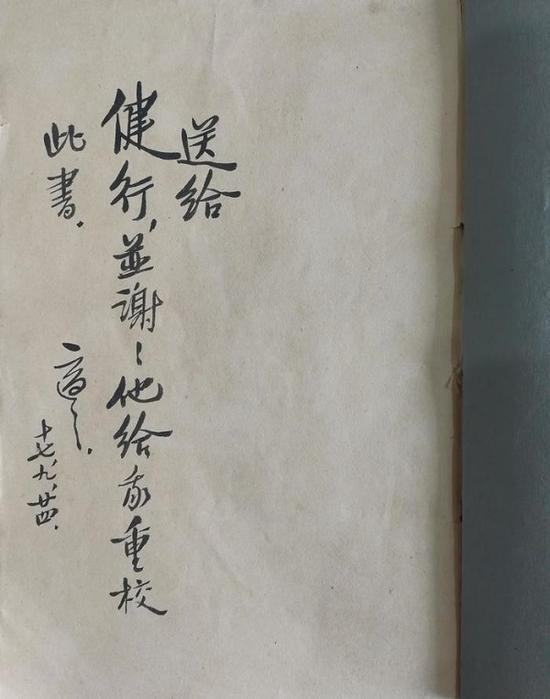 送給
健行，並謝〻他給我重校
此書．
適之．
十七，九，廿四．